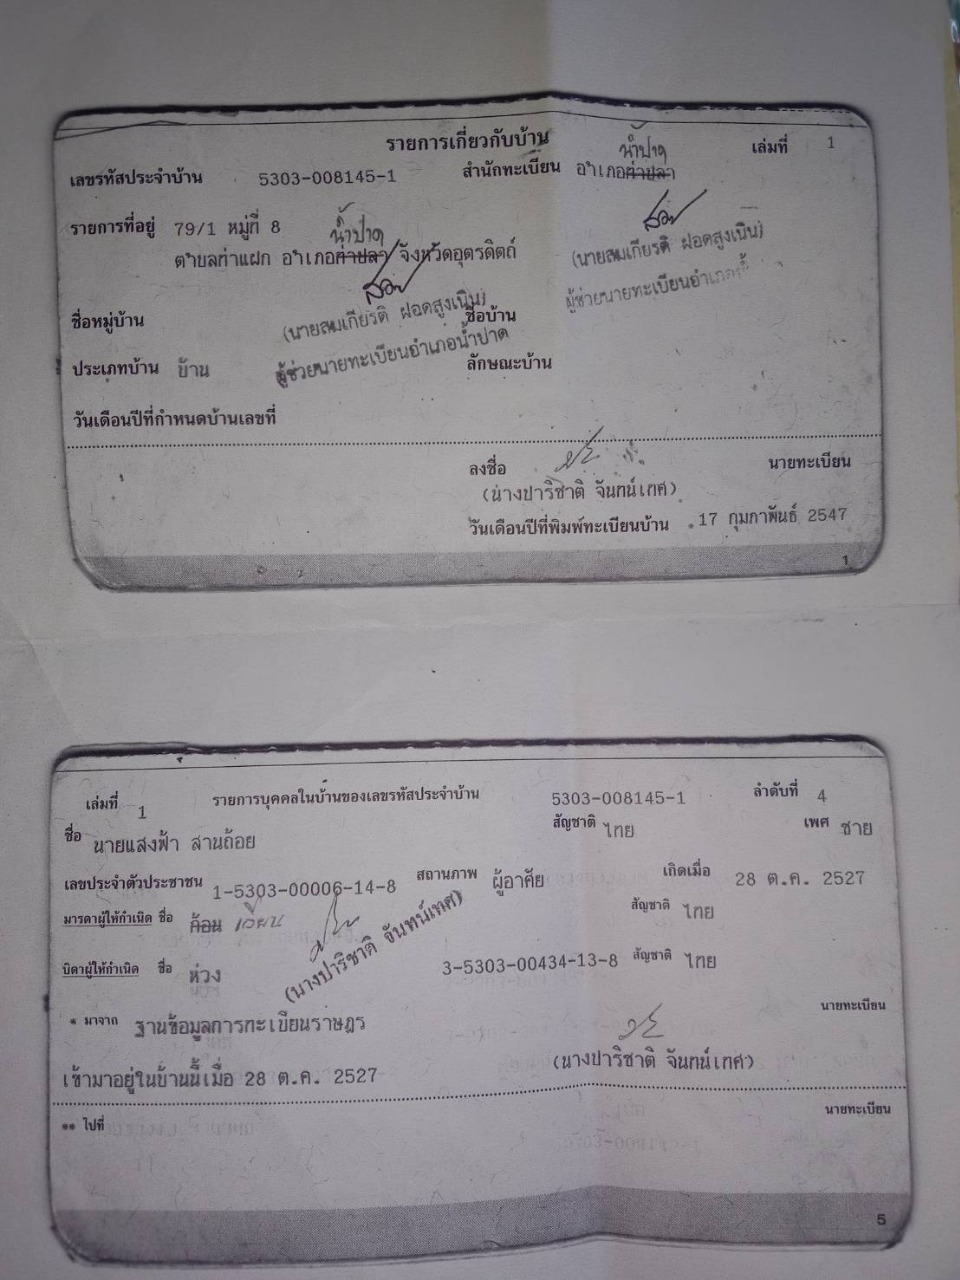 รายการเกี่ยวกับบ้าน
เล่มที่ 1
น้ำปาด
เลขรหัสประจำบ้าน 5303-008145-1 สำนักทะเบียน อำเภอท่าปลา
รายการที่อยู่ 79/1 หมู่ที่ 8
น้ำปาด
ตำบลท่าแฝก อำเภอท่าปลา จังหวัดอุตรดิตถ์
(นายสมเกียรติ ฝอดสูงเนิน)
ผู้ช่วยนายทะเบียนอำเภอ
ชื่อหมู่บ้าน
(นายสมเกียรติ ฝอดสูงเนิน)
ชื่อบ้าน
ประเภทบ้าน บ้าน
ผู้ช่วยนายทะเบียนอำเภอน้ำปาด
ลักษณะบ้าน
วันเดือนปีที่กำหนดบ้านเลขที่
ลงชื่อ นายทะเบียน
(นางปาริชาติ จันทน์เทศ)
วันเดือนปีที่พิมพ์ทะเบียนบ้าน 17 กุมภาพันธ์ 2547
1
เล่มที่ 1 รายการบุคคลในบ้านของเลขรหัสประจำบ้าน 5303-008145-1 ลำดับที่ 4
ชื่อ นายแสงฟ้า สานถ้อย สัญชาติ ไทย เพศ ชาย
เลขประจำตัวประชาชน 1-5303-00006-14-8 สถานภาพ ผู้อาศัย เกิดเมื่อ 28 ต.ค. 2527
มารดาผู้ให้กำเนิด ชื่อ ก้อน สัญชาติ ไทย
(นางปาริชาติ จันทน์เทศ)
บิดาผู้ให้กำเนิด ชื่อ ห่วง 3-5303-00434-13-8 สัญชาติ ไทย
* มาจาก ฐานข้อมูลการทะเบียนราษฎร นายทะเบียน
(นางปาริชาติ จันทน์เทศ)
เข้ามาอยู่ในบ้านนี้เมื่อ 28 ต.ค. 2527
** ไปที่ นายทะเบียน
5